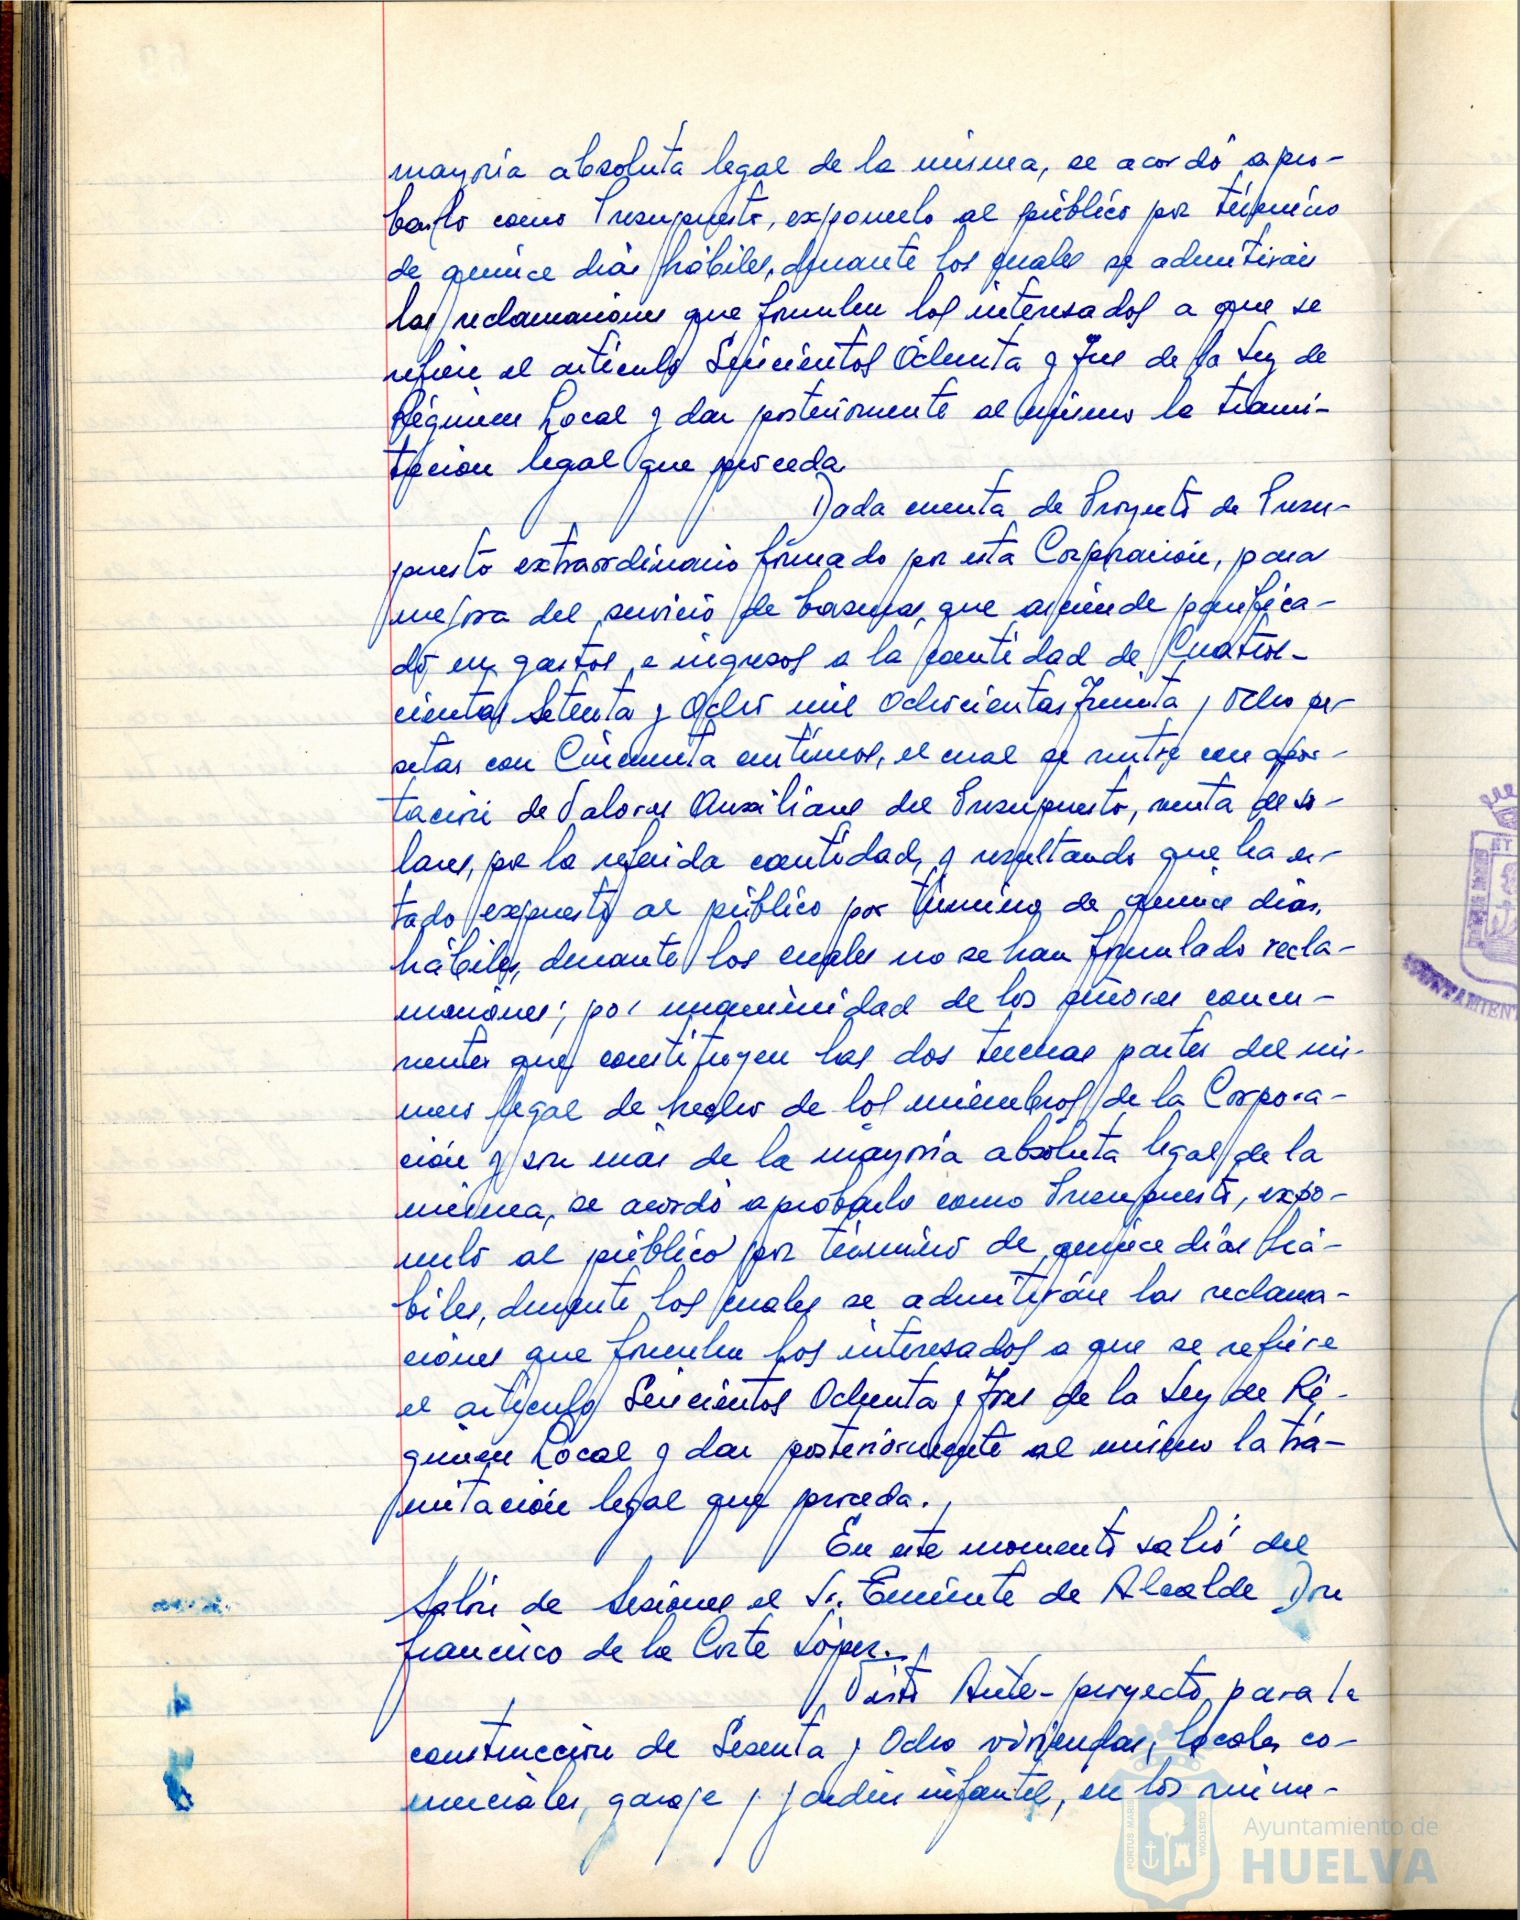 mayoría absoluta legal de la misma, se acordó apro-
barlo como Presupuesto, exponerlo al público por término
de quince días hábiles, durante los cuales se admitirán
las reclamaciones que formulen los interesados a que se
refiere el artículo Seiscientos Ochenta y Tres de la Ley de
Régimen Local y dar posteriormente al mismo la trami-
tación legal que proceda.
Dada cuenta de Proyecto de Presu-
puesto extraordinario formado por esta Corporación, para
mejora del servicio de basuras, que asciende
do en gastos e ingresos a la cantidad de Cuatros-
cientas Setenta y Ocho mil Ochocientas Treinta y Ocho pe-
setas con Cincuenta céntimos, el cual se nutre con apor-
tación de Valores Auxiliares del Presupuesto, venta de so-
lares, por la referida cantidad, y resultando que ha es-
tado expuesto al público por término de quince días
hábiles, durante los cuales no se han formulado recla-
maciones; por unanimidad de los señores concu-
rrentes que constituyen las dos terceras partes del nú-
mero legal de hecho de los miembros de la Corpora-
ción y son más de la mayoría absoluta legal de la
misma, se acordó aprobarlo como Presupuesto, expo-
nerlo al público por término de quince días há-
biles, durante los cuales se admitirán las reclama-
ciones que formulen los interesados a que se refiere
el artículo Seiscientos Ochenta y Tres de la Ley de Ré-
gimen Local y dar posteriormente al mismo la tra-
mitación legal que proceda.
En este momento salió del
Salón de Sesiones el Sr. Teniente de Alcalde Don
Francisco de la Corte López.
Visto Ante-proyecto para la
construcción de Sesenta y Ocho viviendas, locales co-
merciales, garaje y jardín infantil, en los núme-
Ayuntamiento de
HUELVA
PORTUS MARIS
CUSTODIA